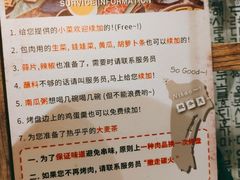 SURVICE INFORMATION
1. 给您提供的小菜欢迎续加的!(Free~!)
2. 包肉用的生菜, 娃娃菜, 黄瓜, 胡萝卜条也可以续加的!
3. 蒜片, 辣椒也准备了, 需要时请联系服务员
4. 蘸料不够的话请叫服务员, 马上给您续加!
5. 南瓜粥想喝几碗喝几碗(但不能浪费哟~)
6. 烤盘边上的鸡蛋羹也可以免费续加!
7. 为您准备了热乎乎的大麦茶
So Good~!
一. 为了保证味道避免串味, 原则上一种肉品换一次烤盘
二. 如果您不再烤肉, 请联系服务员"撤走碳火"